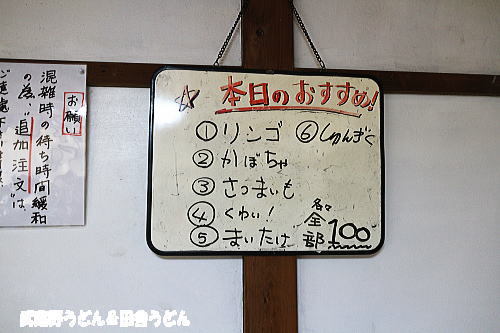 ☆ 本日のおすすめ!
① リンゴ ⑥ しゅんぎく
② かぼちゃ
③ さつまいも
④ くわい!
⑤ まいたけ
各々
全部 100
お願い
混雑時の待ち時間緩和
の為、"追加注文"は、
武蔵野うどん&田舎うどん